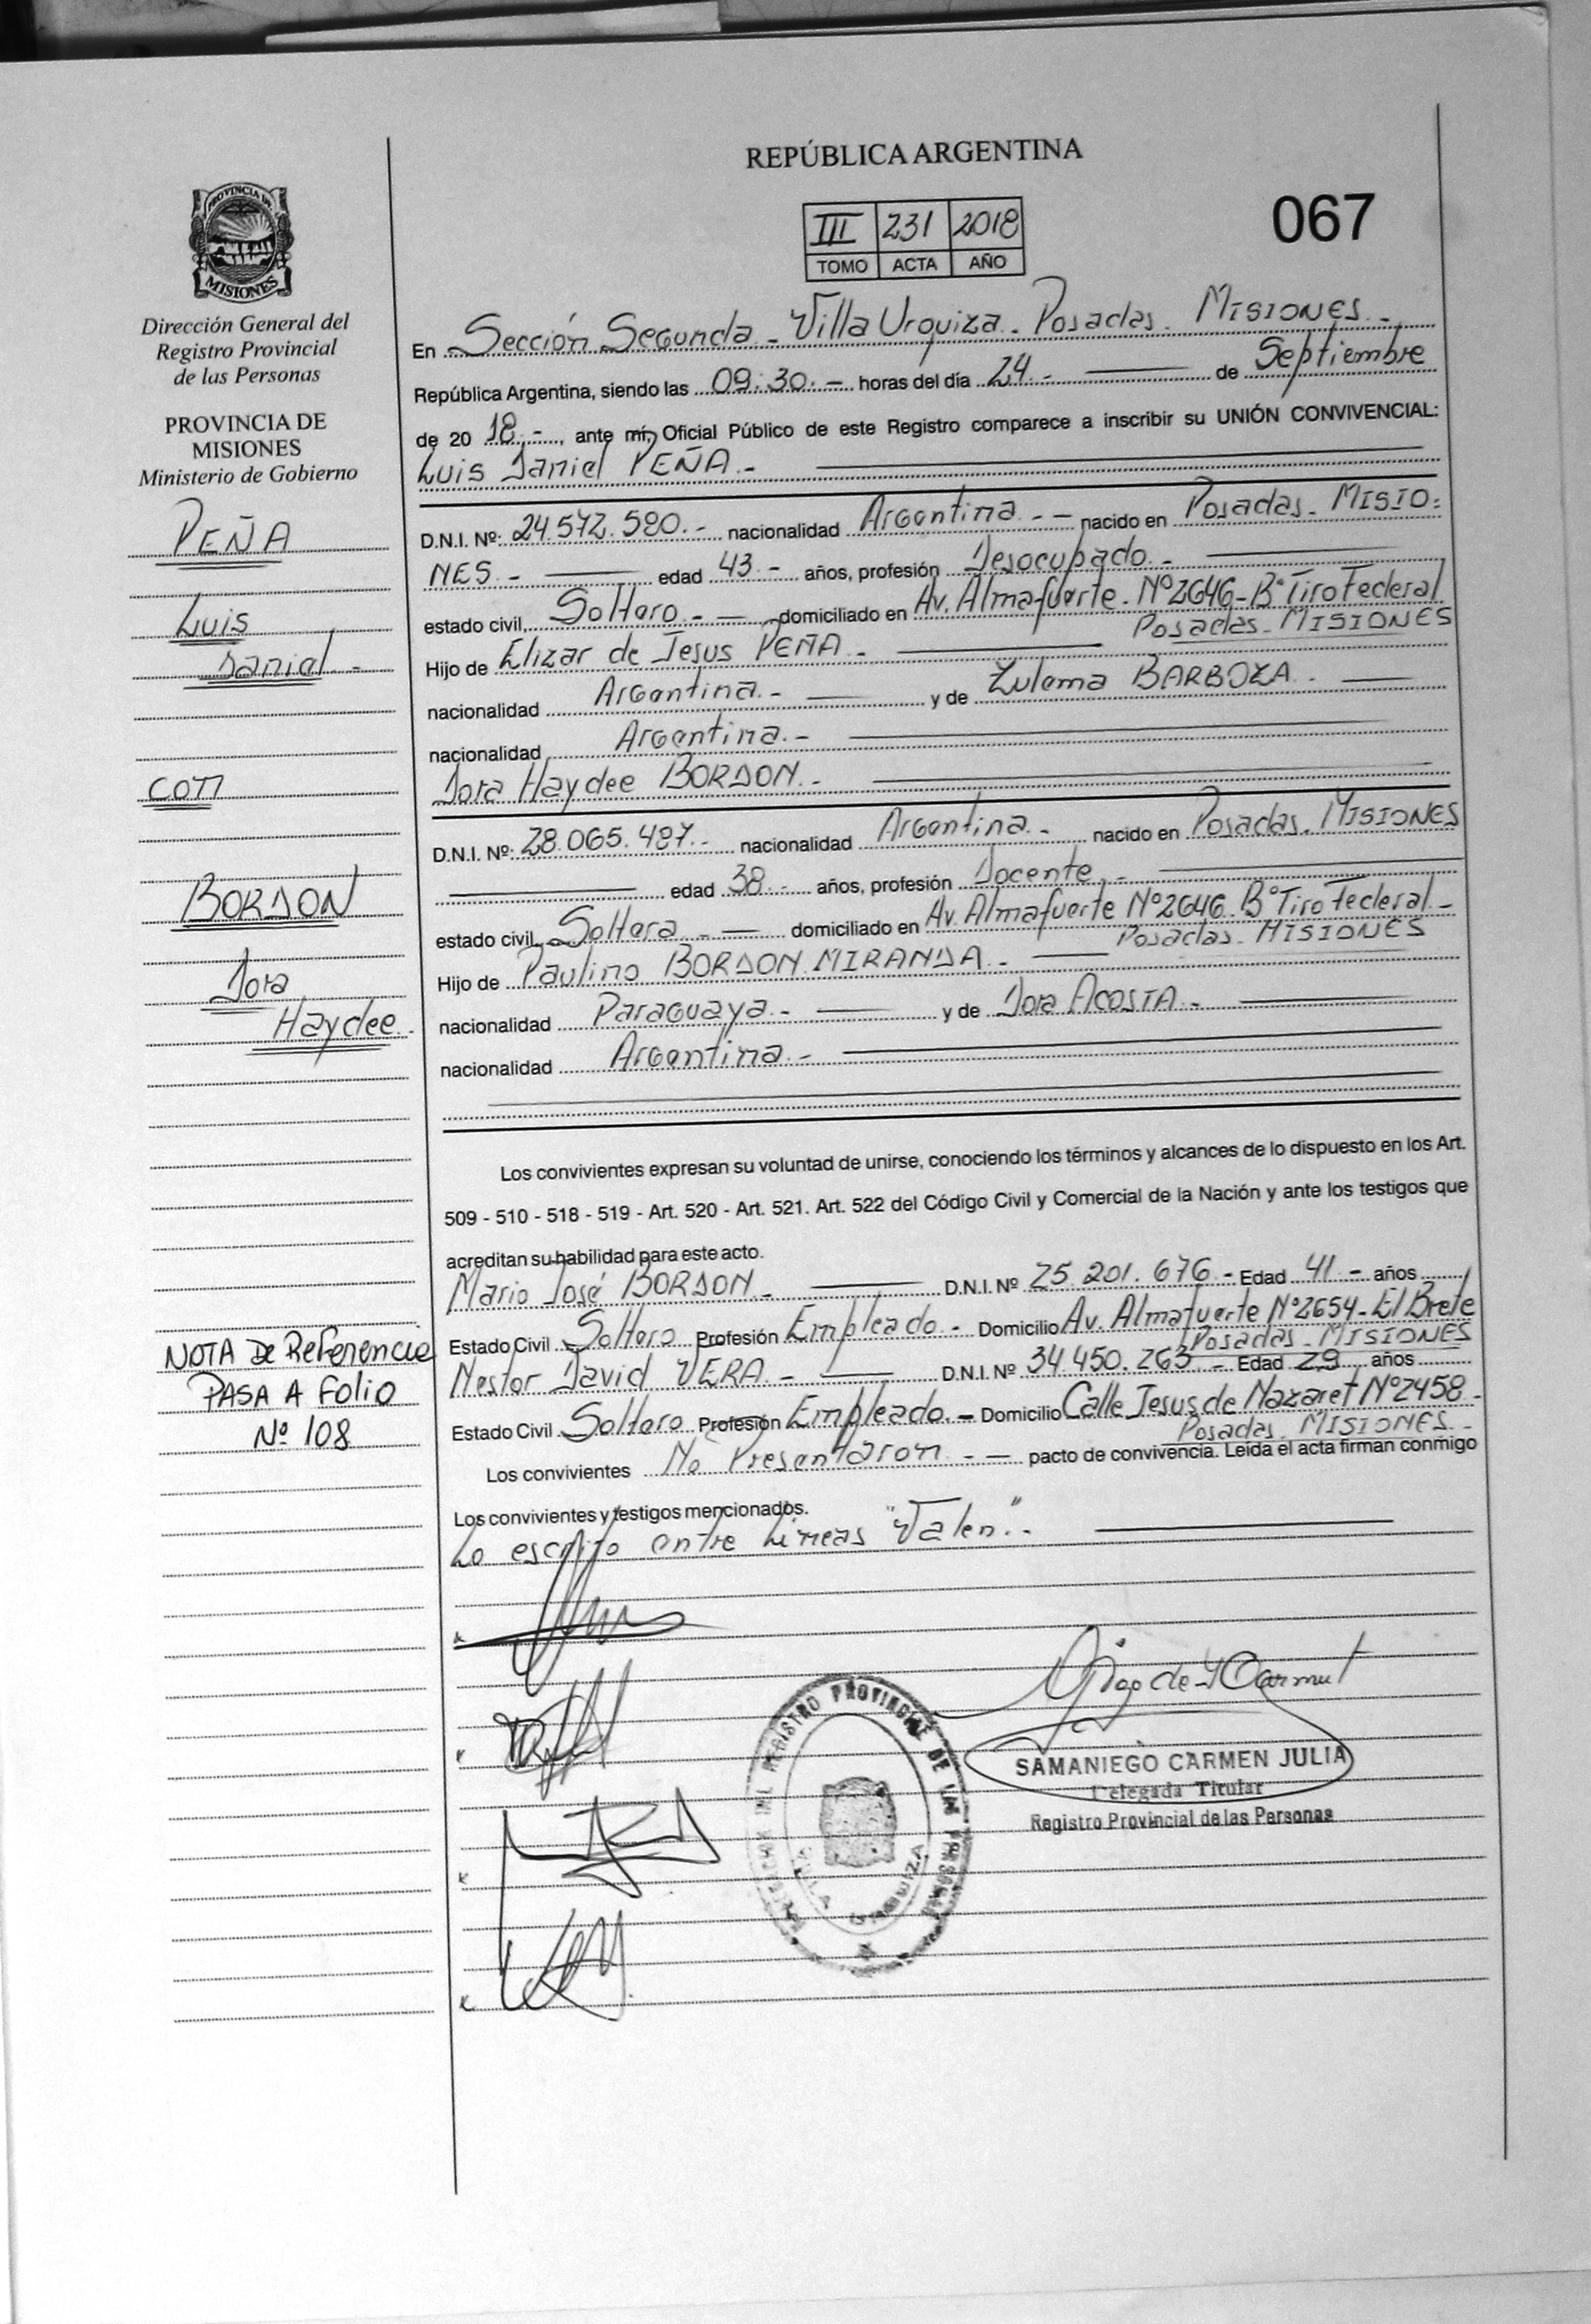 REPÚBLICA ARGENTINA
067
III 231 2018
TOMO ACTA AÑO
PROVINCIA DE
MISIONES
Dirección General del
Registro Provincial
de las Personas
PROVINCIA DE
MISIONES
Ministerio de Gobierno
PEÑA
Luis
Daniel -
con
BORDON
Dora
Haydee.-
NOTA De Referencia
PASA A Folio
Nº 108
En Sección Segunda - Villa Urquiza - Posadas - MISIONES -
República Argentina, siendo las 09:30.- horas del día 24.- de Septiembre
de 20 18.-, ante mí, Oficial Público de este Registro comparece a inscribir su UNIÓN CONVIVENCIAL:
Luis Daniel PEÑA.-
D.N.I. Nº: 24.572.580.- nacionalidad Argentina.- - nacido en Posadas - MISIO=
NES - edad 43 - años, profesión Desocupado.-
estado civil, Soltero.- - domiciliado en Av. Almafuerte - Nº2646 - Bº Tiro Federal
Posadas - MISIONES
Hijo de Elizar de Jesus PEÑA -
nacionalidad Argentina.- y de Zulema BARBOZA -
nacionalidad Argentina.-
Dora Haydee BORDON.-
D.N.I. Nº: 28.065.487.- nacionalidad Argentina.- nacido en Posadas - MISIONES
edad 38.- años, profesión Docente.-
estado civil, Soltera - - domiciliado en Av. Almafuerte Nº2646 - Bº Tiro Federal -
Posadas - MISIONES
Hijo de Paulino BORDON MIRANDA -
nacionalidad Paraguaya.- y de Dora ACOSTA.-
nacionalidad Argentina.-
Los convivientes expresan su voluntad de unirse, conociendo los términos y alcances de lo dispuesto en los Art.
509 - 510 - 518 - 519 - Art. 520 - Art. 521. Art. 522 del Código Civil y Comercial de la Nación y ante los testigos que
acreditan su habilidad para este acto.
Mario José BORDON - D.N.I. Nº 25.201.676 - Edad 41 - años
Estado Civil Soltero Profesión Empleado.- Domicilio Av. Almafuerte Nº2654 - El Brete
Posadas - MISIONES
Nestor David VERA - D.N.I. Nº 34.450.263 - Edad 29 años
Estado Civil Soltero Profesión Empleado.- Domicilio Calle Jesus de Nazaret Nº2458 -
Posadas - MISIONES -
Los convivientes No Presentaron - - pacto de convivencia. Leída el acta firman conmigo
Los convivientes y testigos mencionados.
Lo escrito entre Líneas "Valen".-
SAMANIEGO CARMEN JULIA
Delegada Titular
Registro Provincial de las Personas
REGISTRO PROVINCIAL DE
VILLA URQUIZA